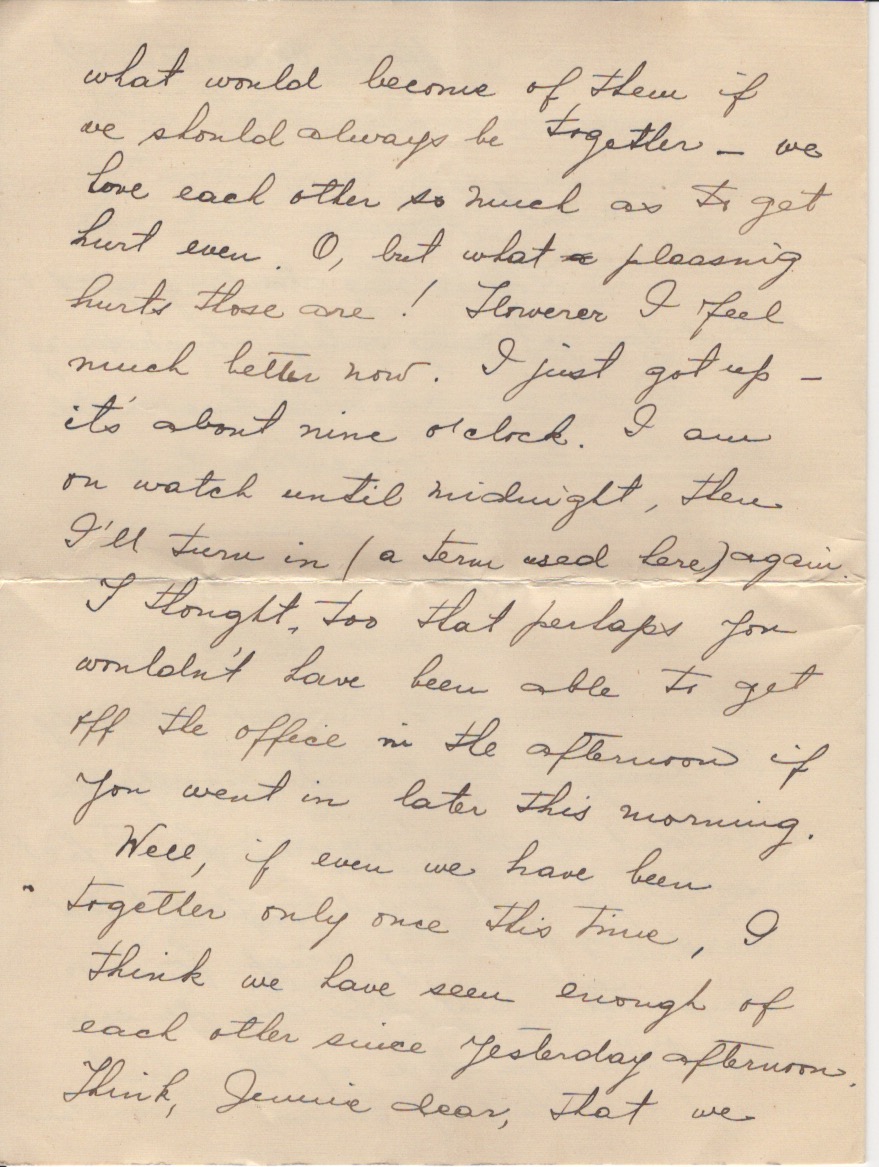 what would become of them if
we should always be together – we
love each other so much as to get
hurt even. O, but what pleasnig
hurts those are! However I feel
much better now. I just got up –
it's about nine o'clock. I am
on watch until midnight, then
I'll turn in (a term used here) again.
I thought, too that perhaps you
wouldn't have been able to get
off the office in the afternoon if
you went in later this morning.
Well, if even we have been
together only once this time, I
think we have seen enough of
each other since yesterday afternoon.
Think, Jennie dear, that we